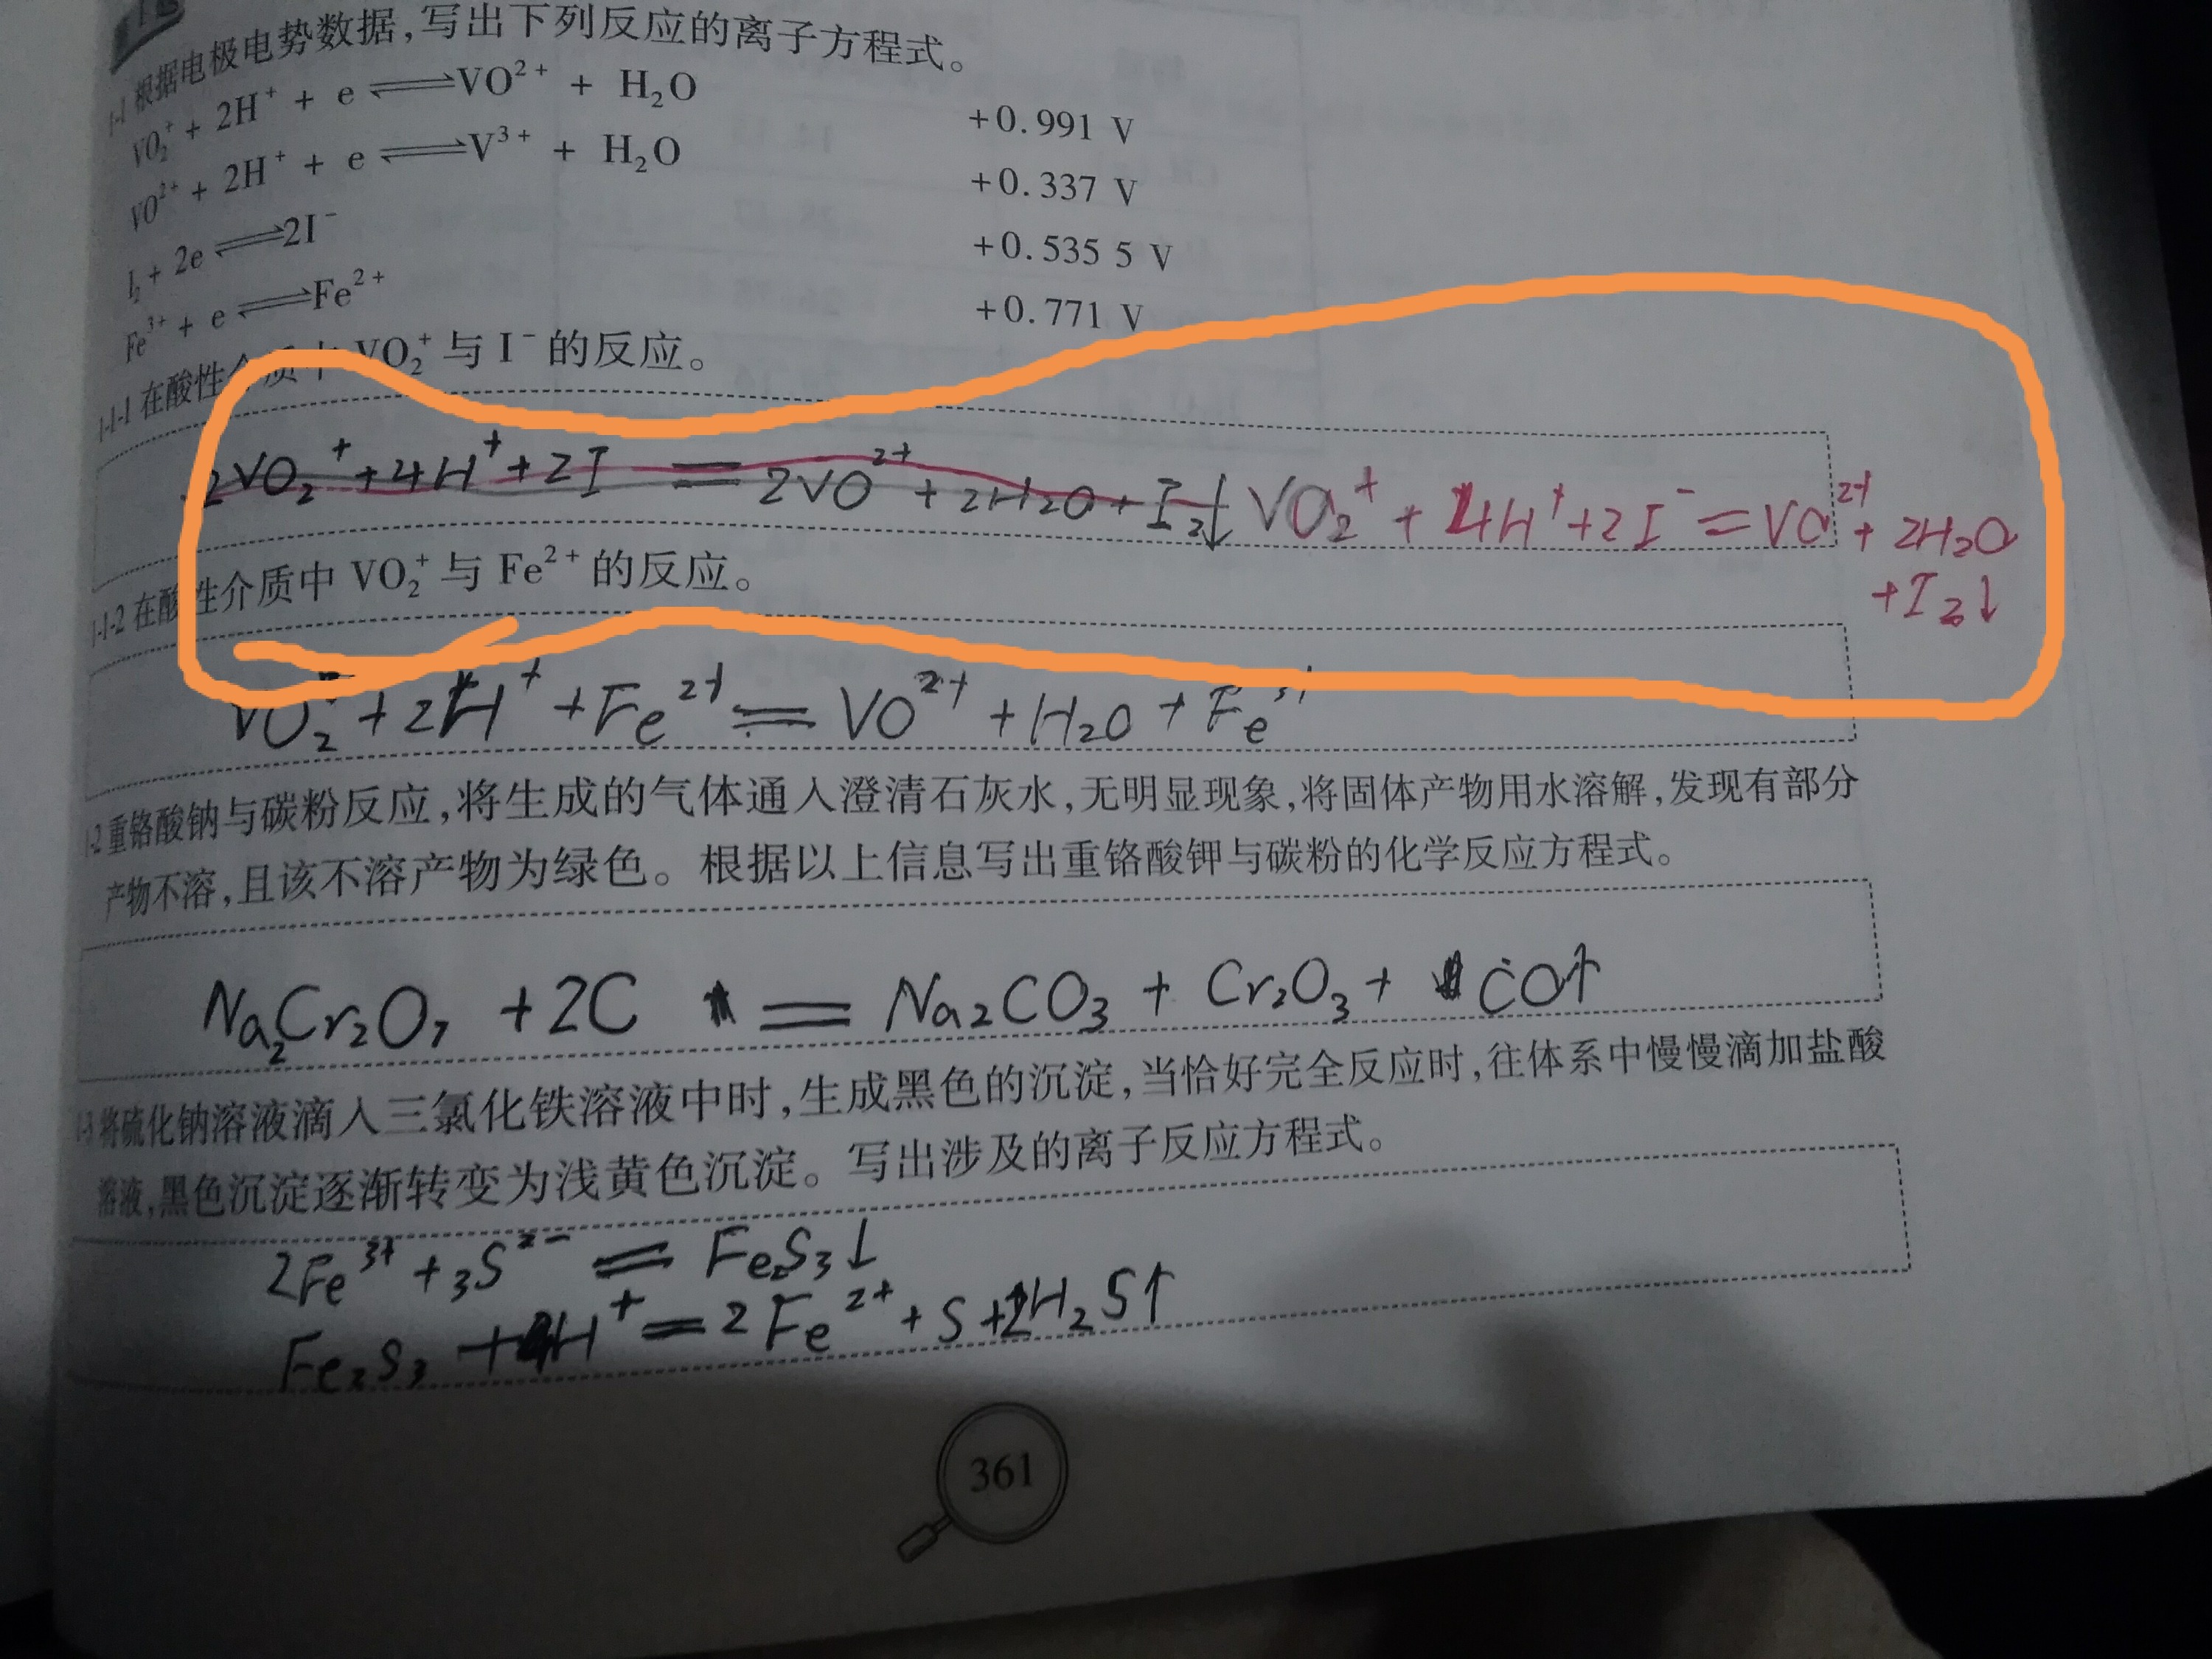 1-1 根据电极电势数据,写出下列反应的离子方程式。
VO₂⁺ + 2H⁺ + e ⇌ VO²⁺ + H₂O +0.991 V
VO²⁺ + 2H⁺ + e ⇌ V³⁺ + H₂O +0.337 V
I₂ + 2e ⇌ 2I⁻ +0.535 5 V
Fe³⁺ + e ⇌ Fe²⁺ +0.771 V
1-1-1 在酸性介质中 VO₂⁺ 与 I⁻ 的反应。
2VO₂⁺ + 4H⁺ + 2I = 2VO²⁺ + 2H₂O + I₂↓ VO₂⁺ + 4H⁺ + 2I⁻ = VO²⁺ + 2H₂O
+ I₂↓
1-1-2 在酸性介质中 VO₂⁺ 与 Fe²⁺ 的反应。
VO₂⁺ + 2H⁺ + Fe²⁺ = VO²⁺ + H₂O + Fe³⁺
1-2 重铬酸钠与碳粉反应,将生成的气体通入澄清石灰水,无明显现象,将固体产物用水溶解,发现有部分
产物不溶,且该不溶产物为绿色。根据以上信息写出重铬酸钾与碳粉的化学反应方程式。
Na₂Cr₂O₇ + 2C = Na₂CO₃ + Cr₂O₃ + CO↑
1-3 将硫化钠溶液滴入三氯化铁溶液中时,生成黑色的沉淀,当恰好完全反应时,往体系中慢慢滴加盐酸
溶液,黑色沉淀逐渐转变为浅黄色沉淀。写出涉及的离子反应方程式。
2Fe³⁺ + 3S²⁻ = Fe₂S₃↓
Fe₂S₃ + 4H⁺ = 2Fe²⁺ + S + 2H₂S↑
361